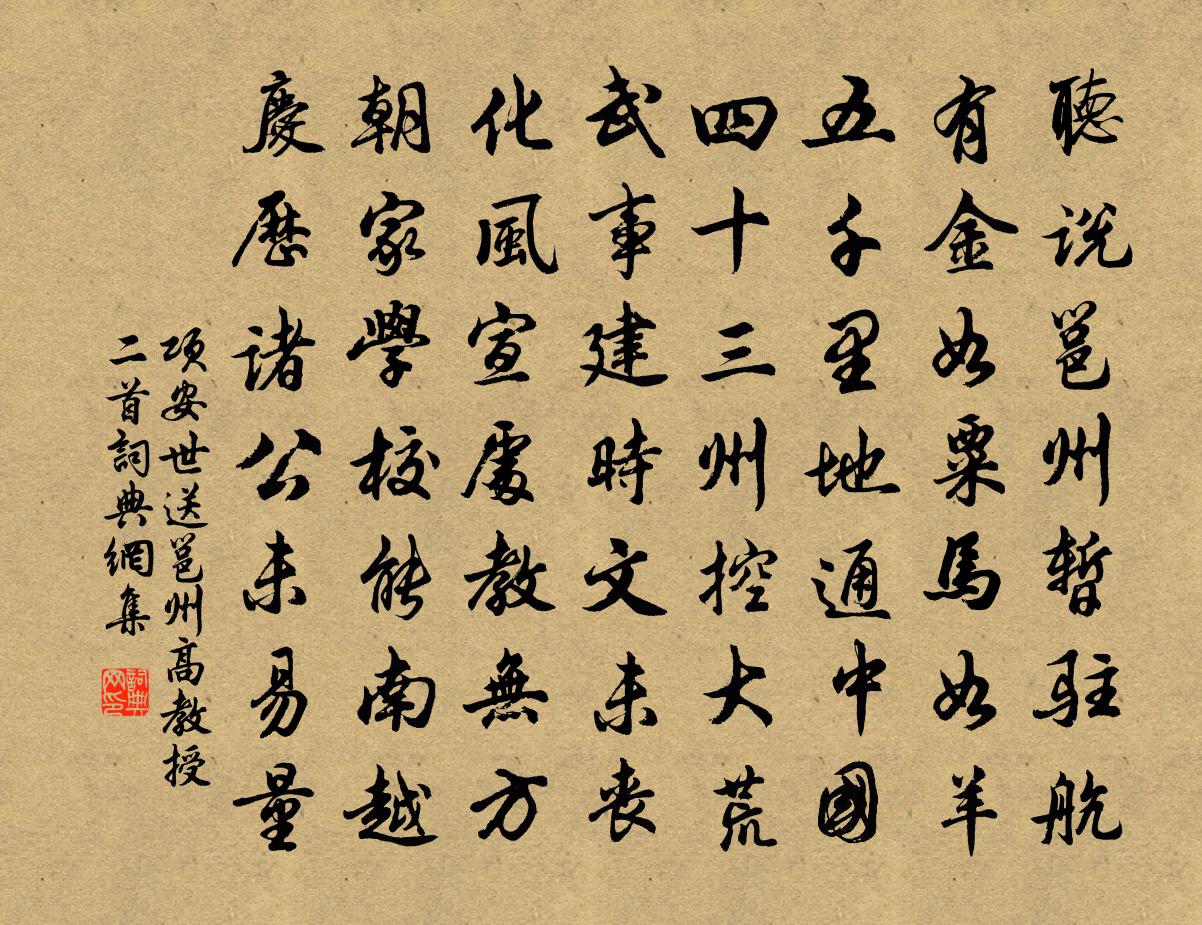 聽説邕州暫駐航
有金如粟馬如羊
五千里地通中國
四十三州控大荒
武事建時文未喪
化風宣處教無方
朝家學校能南越
慶歷諸公未易量
項安世送邕州高教授
二首詞典網集
詞典网印